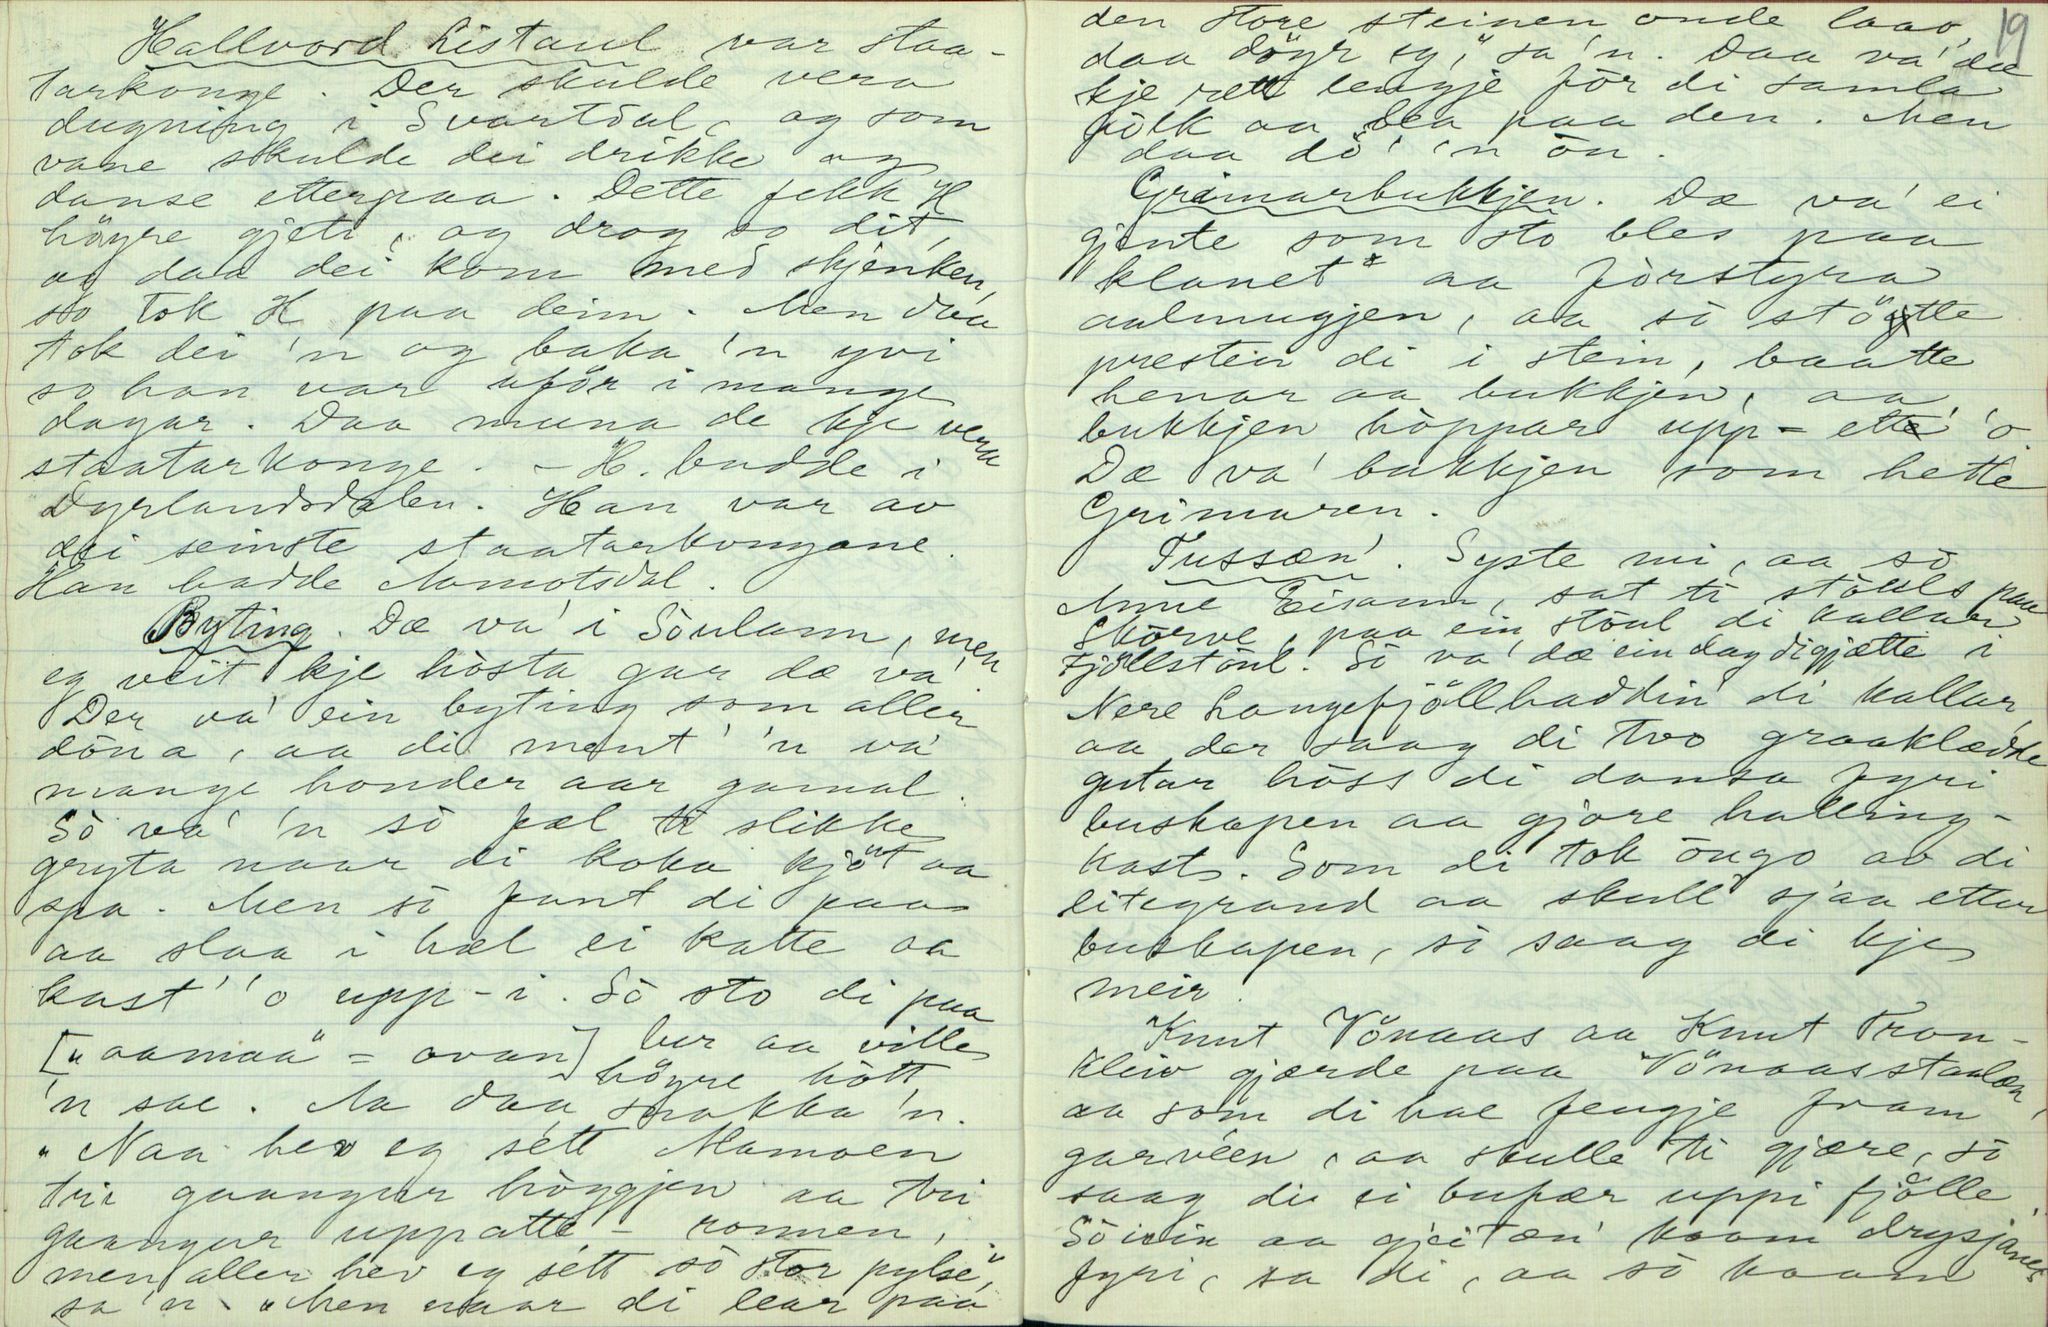 Hallvord Listaul var staa-
tarkonge. Der skulde vera
dugning i Svartdal, og som
vane skulde dei drikke og
danse etterpaa. Dette fekk H
höyre gjeti, og drog so dit,
og daa dei kom med skjenken,
so tok H paa deim. Men daa
tok dei 'n og baka 'n yvi
so han var ufför i mange
dagar. Daa muna de kje vera
staatarkonge. – H. budde i
Dyrlandsdalen. Han var av
dei seinste staatarkongane.
Han hadde Aamotsdal.
Byting. Dæ va' i Sòulann, men
eg veit kje hòsta gar dæ va'
Der va' ein byting som aller
döua, aa di ment' 'n va'
mange honder aar gamal.
Sò va' 'n sò fæl ti slikke
gryta naar di koka kjöt aa
spa. Men sò funt di paa
aa slaa i hæl ei katte aa
kast' 'o upp-i. Sò sto di paa
["aamaa" = ovan] ber aa ville
höyre hòtt
'n sae. Aa daa snakka 'n.
"Naa hev eg sètt Mamoen
tri gaangur höggjen aa tri
gaangur uppatte-ronnen,
men aller hev eg sètt sò stor pylse",
sa 'n. "Men naar di lear paa
19
den store steinen onde laav,
daa döyr eg," sa 'n. Daa va' dæ
kje rett lengje för di samla
fòlk aa lea paa den. Men
daa dö' 'n òn.
Grimarbukkjen. Dæ va' ei
gjente som sto bles paa
"klanet" aa fòrstyra
aalmugjen, aa sò stöytte
presten di i stein, baatte
henar aa bukkjen, aa
bukkjen hòppar upp-ette 'o.
Dæ va' bukkjen som hette
Grimaren.
Tussæn'. Syste mi, aa so
Anne Eisann, sat ti stöuls paa
Skòrve, paa ein stöul di kallar
Fjöllstöul. Sò va' dæ ein dag di gjætte i
Nere Langefjöllhaddin di kallar,
aa der saag di two graaklædde
gutar hòss di dansa fyri
buskapen aa gjore halling-
kast. Som di tok òugo av di
litegrand aa skull' sjaa etter
buskapen, sò saag di kje
meir.
Knut Vönaas aa Knut Tron-
kleiv gjærde paa Vönaasstaulæn,
aa som di hae fengje fram
garvèen, aa skulle ti gjære, sò
saag di ei bufær uppi fjölle.
Sòiin aa gjeitæn' kaam drysjanes
fyri, sa di, aa sò kaam